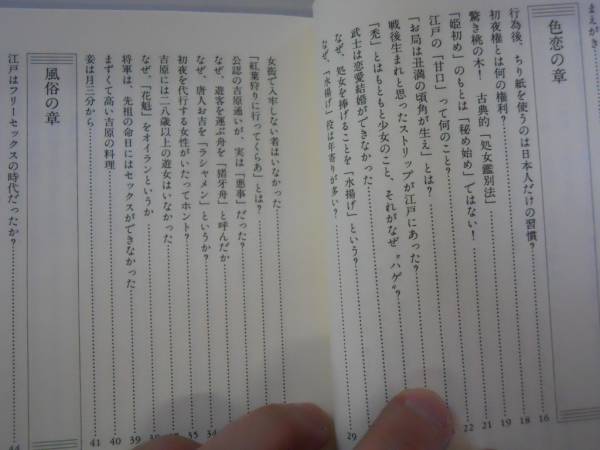 まえがき
色恋の章
行為後、ちり紙を使うのは日本人だけの習慣? 16
初夜権とは何の権利? 18
驚き桃の木! 古典的「処女鑑別法」 19
「姫初め」のもとは「秘め始め」ではない! 21
江戸の「甘口」って何のこと? 22
「お局は丑満の頃角が生え」とは?
戦後生まれと思ったストリップが江戸にあった?
「禿」とはもともと少女のこと、それがなぜ〝ハゲ〟?
武士は恋愛結婚ができなかった
なぜ、処女を捧げることを「水揚げ」という?
なぜ、「水揚げ」役は年寄りが多い? 29
女街で入牢しない者はいなかった
「紅葉狩りに行ってくらあ」とは?
公認の吉原通いが、実は「悪事」だった?
なぜ、遊客を運ぶ舟を「猪牙舟」と呼んだか 34
なぜ、唐人お吉を「ラシャメン」というか? 35
初夜を代行する女性がいたってホント?
吉原には二八歳以上の遊女はいなかった
なぜ、「花魁」をオイランというか
将軍は、先祖の命日にはセックスができなかった 39
まずくて高い吉原の料理 40
妾は月三分から 41
風俗の章
江戸はフリーセックスの時代だったか? 44